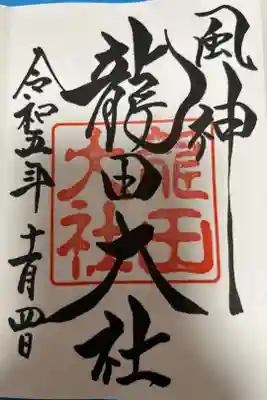 風神
龍田大社
龍田
大社
令和五年 十一月四日